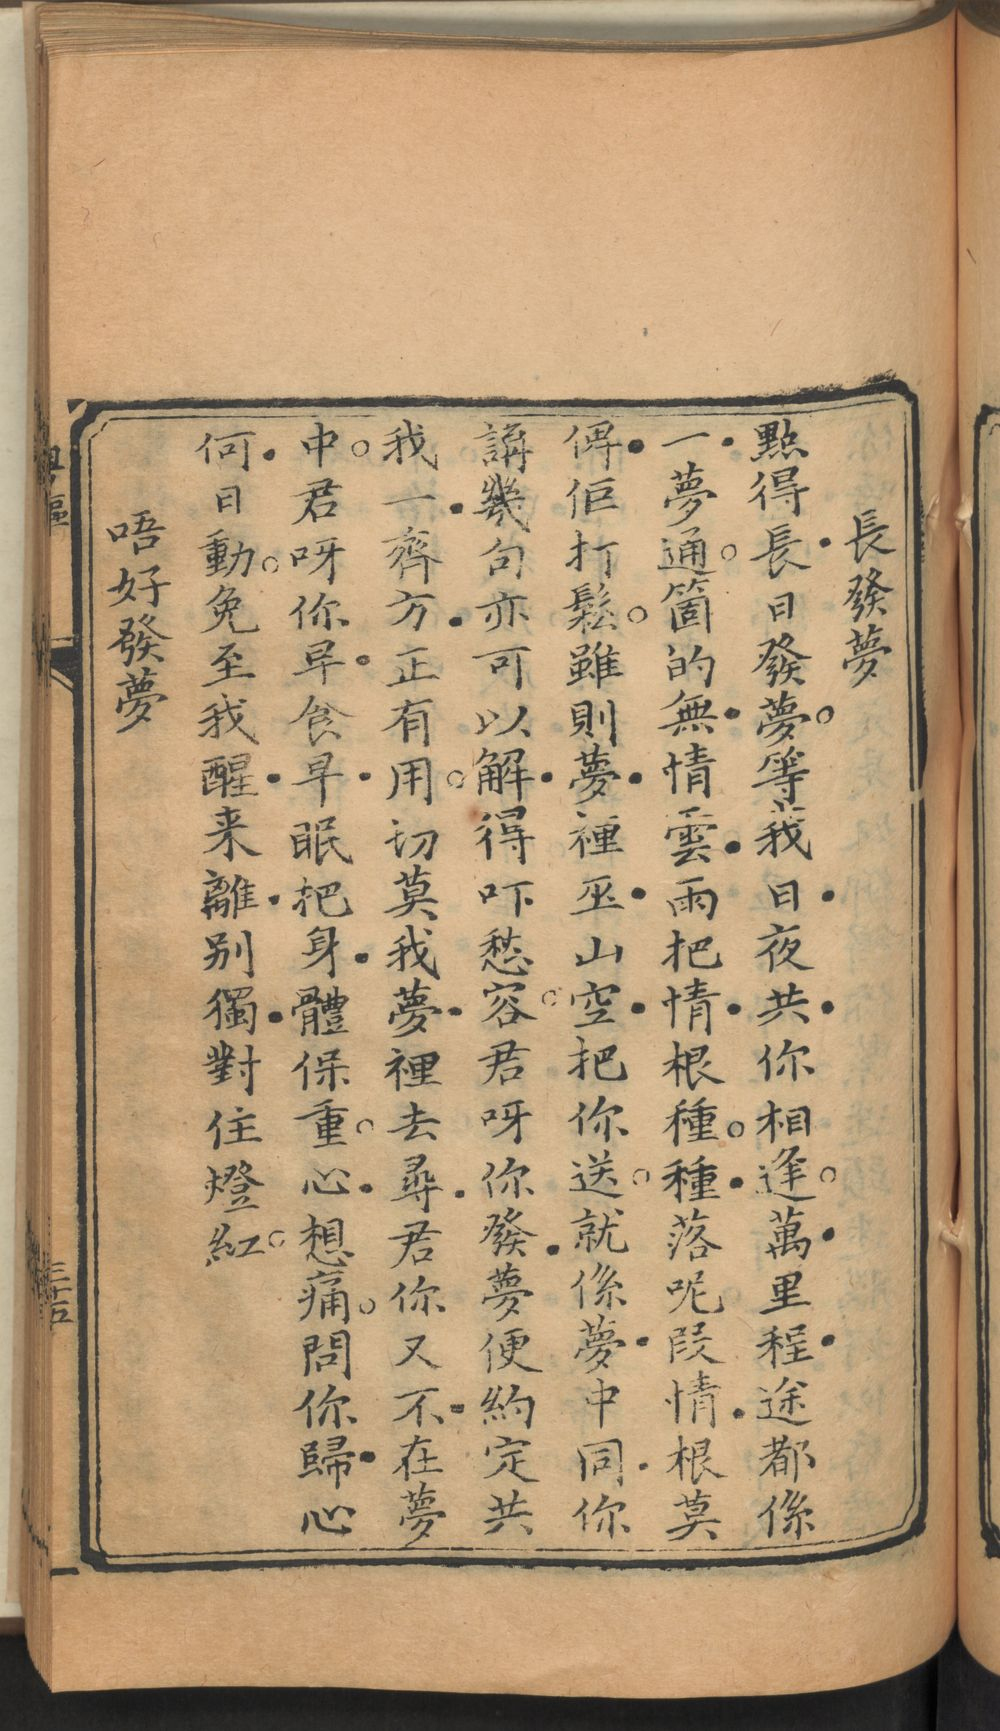 長發夢
點得長日發夢等我日夜共你相逢萬里程途都係
一夢通箇的無情雲雨把情根種種落呢段情根莫
俾佢打鬆雖則夢裡巫山空把你送就係夢中同你
講幾句亦可以解得吓愁容君呀你發夢便約定共
我一齊方正有用切莫我夢裡去尋君你又不在夢
中君呀你早食早眠把身體保重心想痛問你歸心
何日動免至我醒来離别獨對住燈紅
唔好發夢
三十五